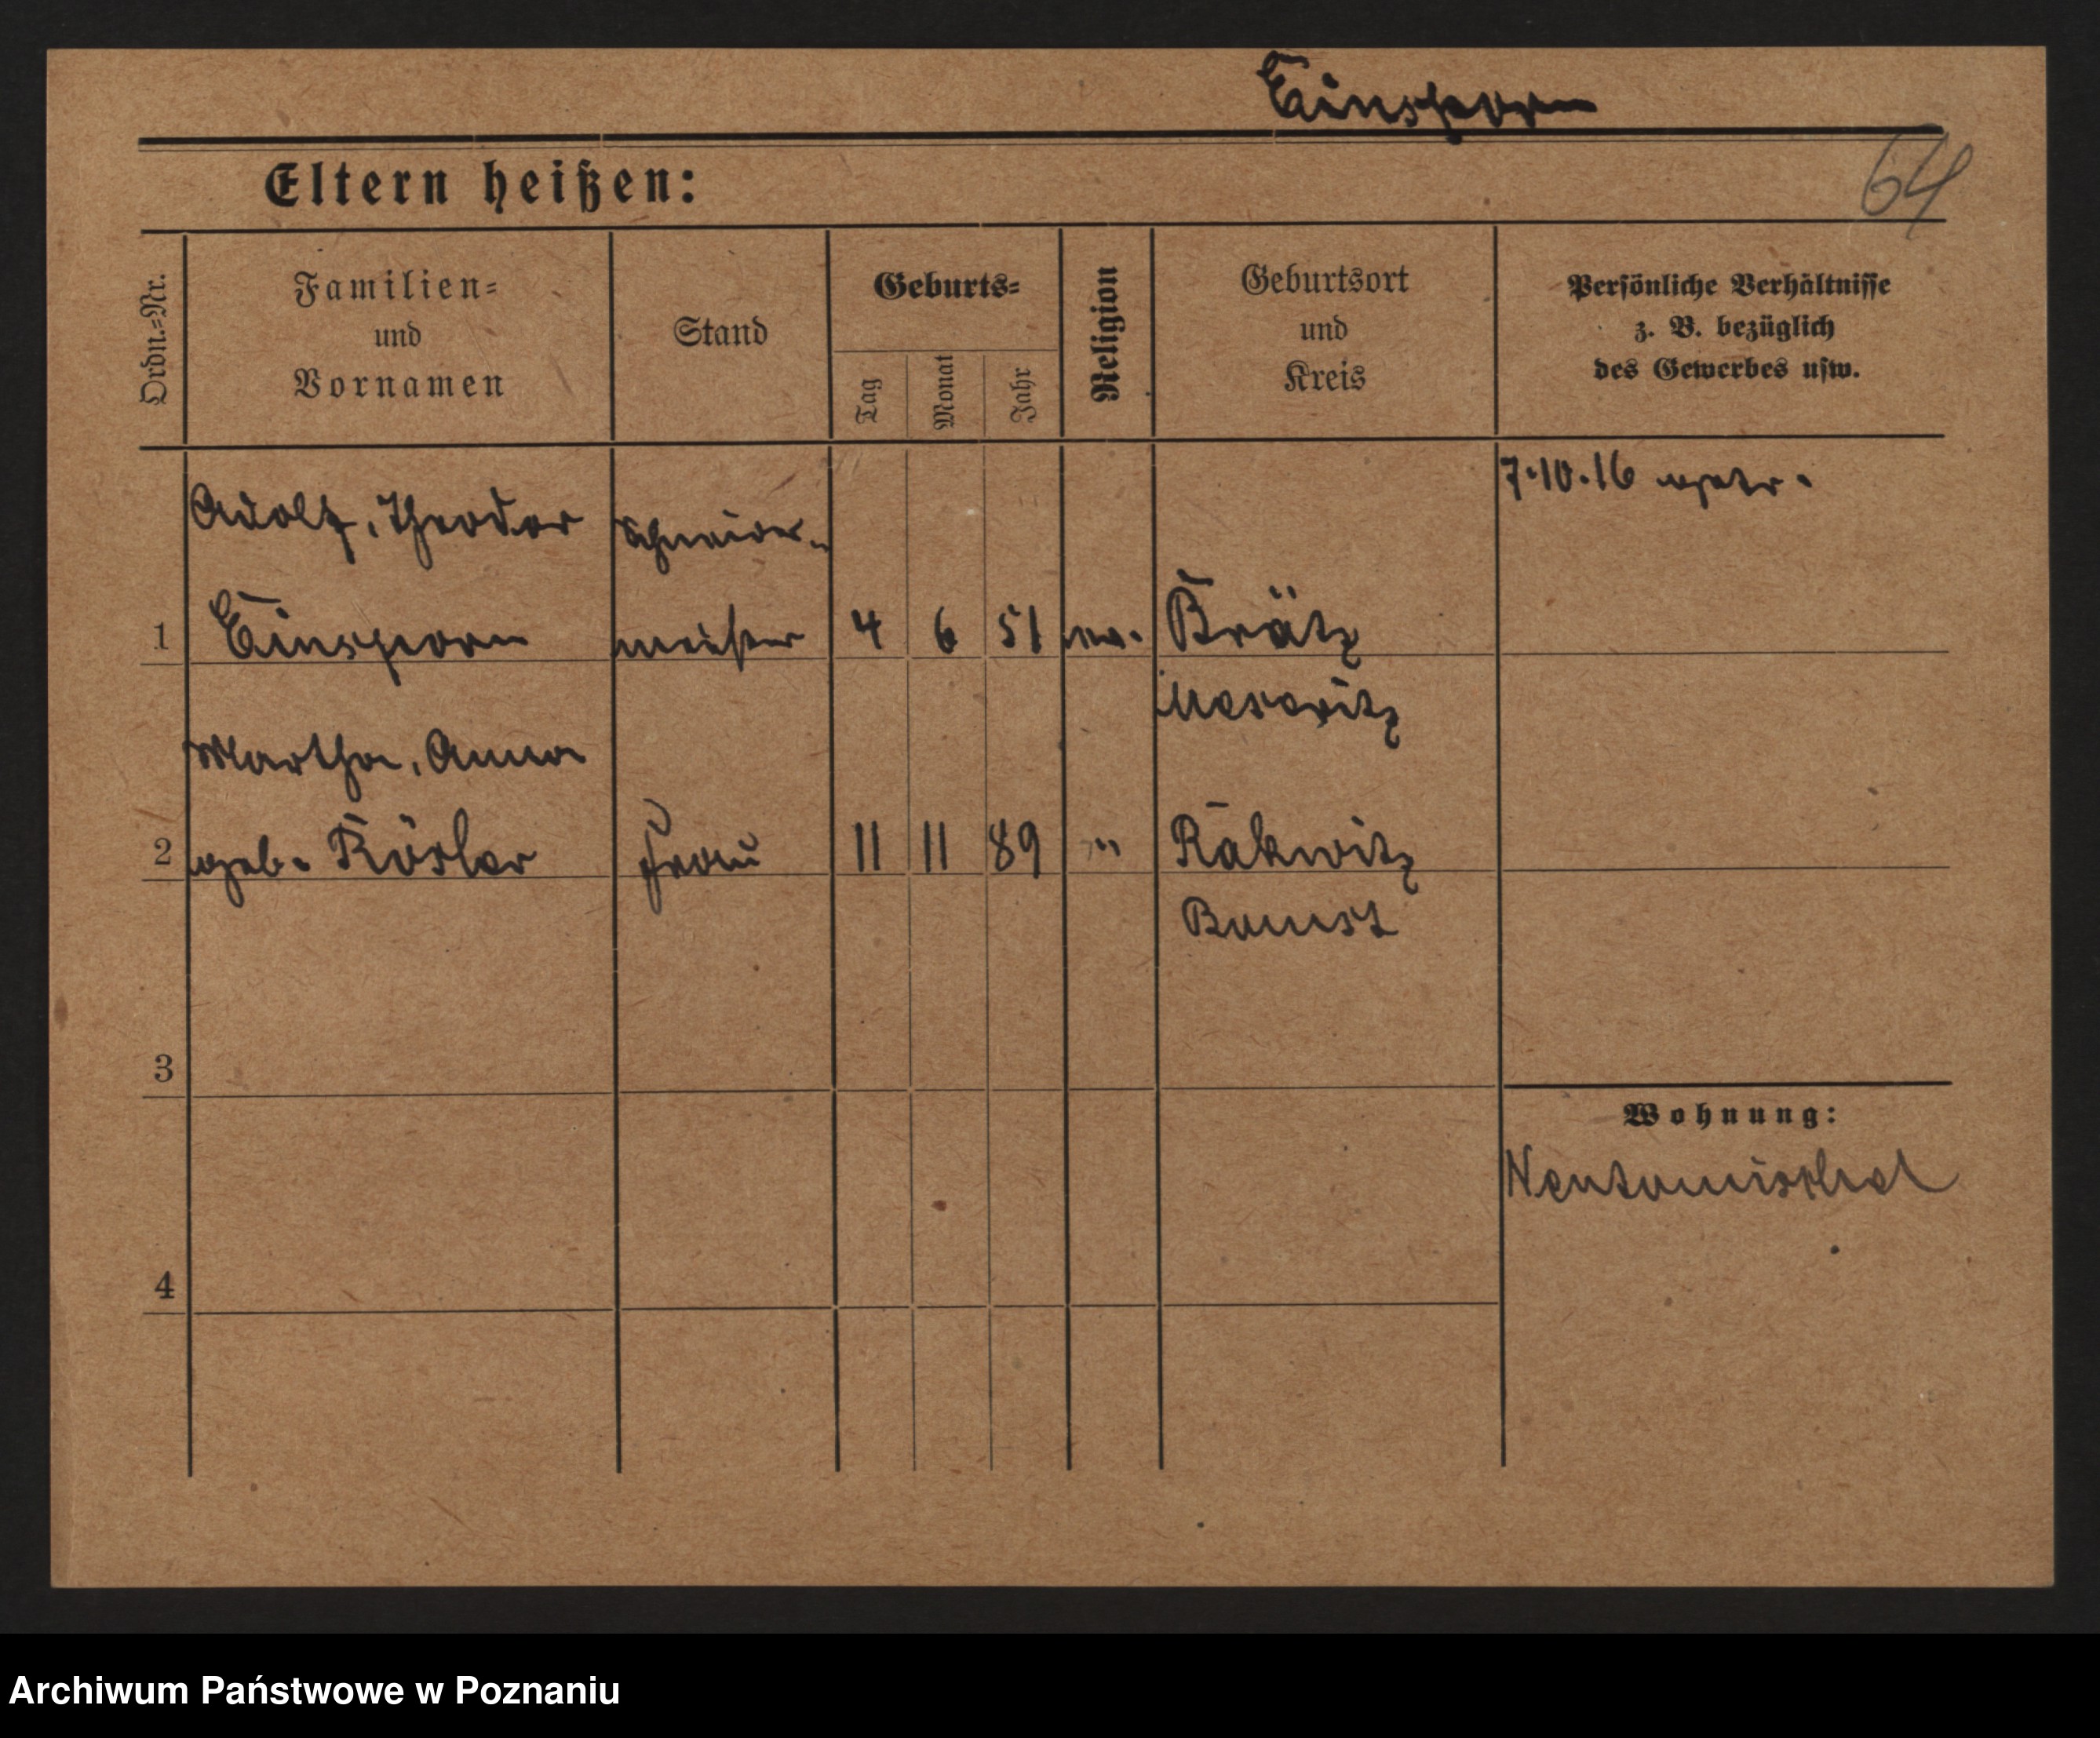 Einsporn
64
Eltern heißen:
Ordn.-Nr.
Familien-
und
Vornamen
Stand
Geburts-
Tag
Monat
Jahr
Religion
Geburtsort
und
Kreis
Persönliche Verhältnisse
z. B. bezüglich
des Gewerbes usw.
7.10.16
Adolf, Theodor Schneider-
1 Einsporn meister 4 6 51 ev. Brätz
Meseritz
Martha, Anna
2 geb. Rösler Frau 11 11 89 " Rakwitz
Bomst
3
Wohnung:
Neutomischel
4
Archiwum Państwowe w Poznaniu